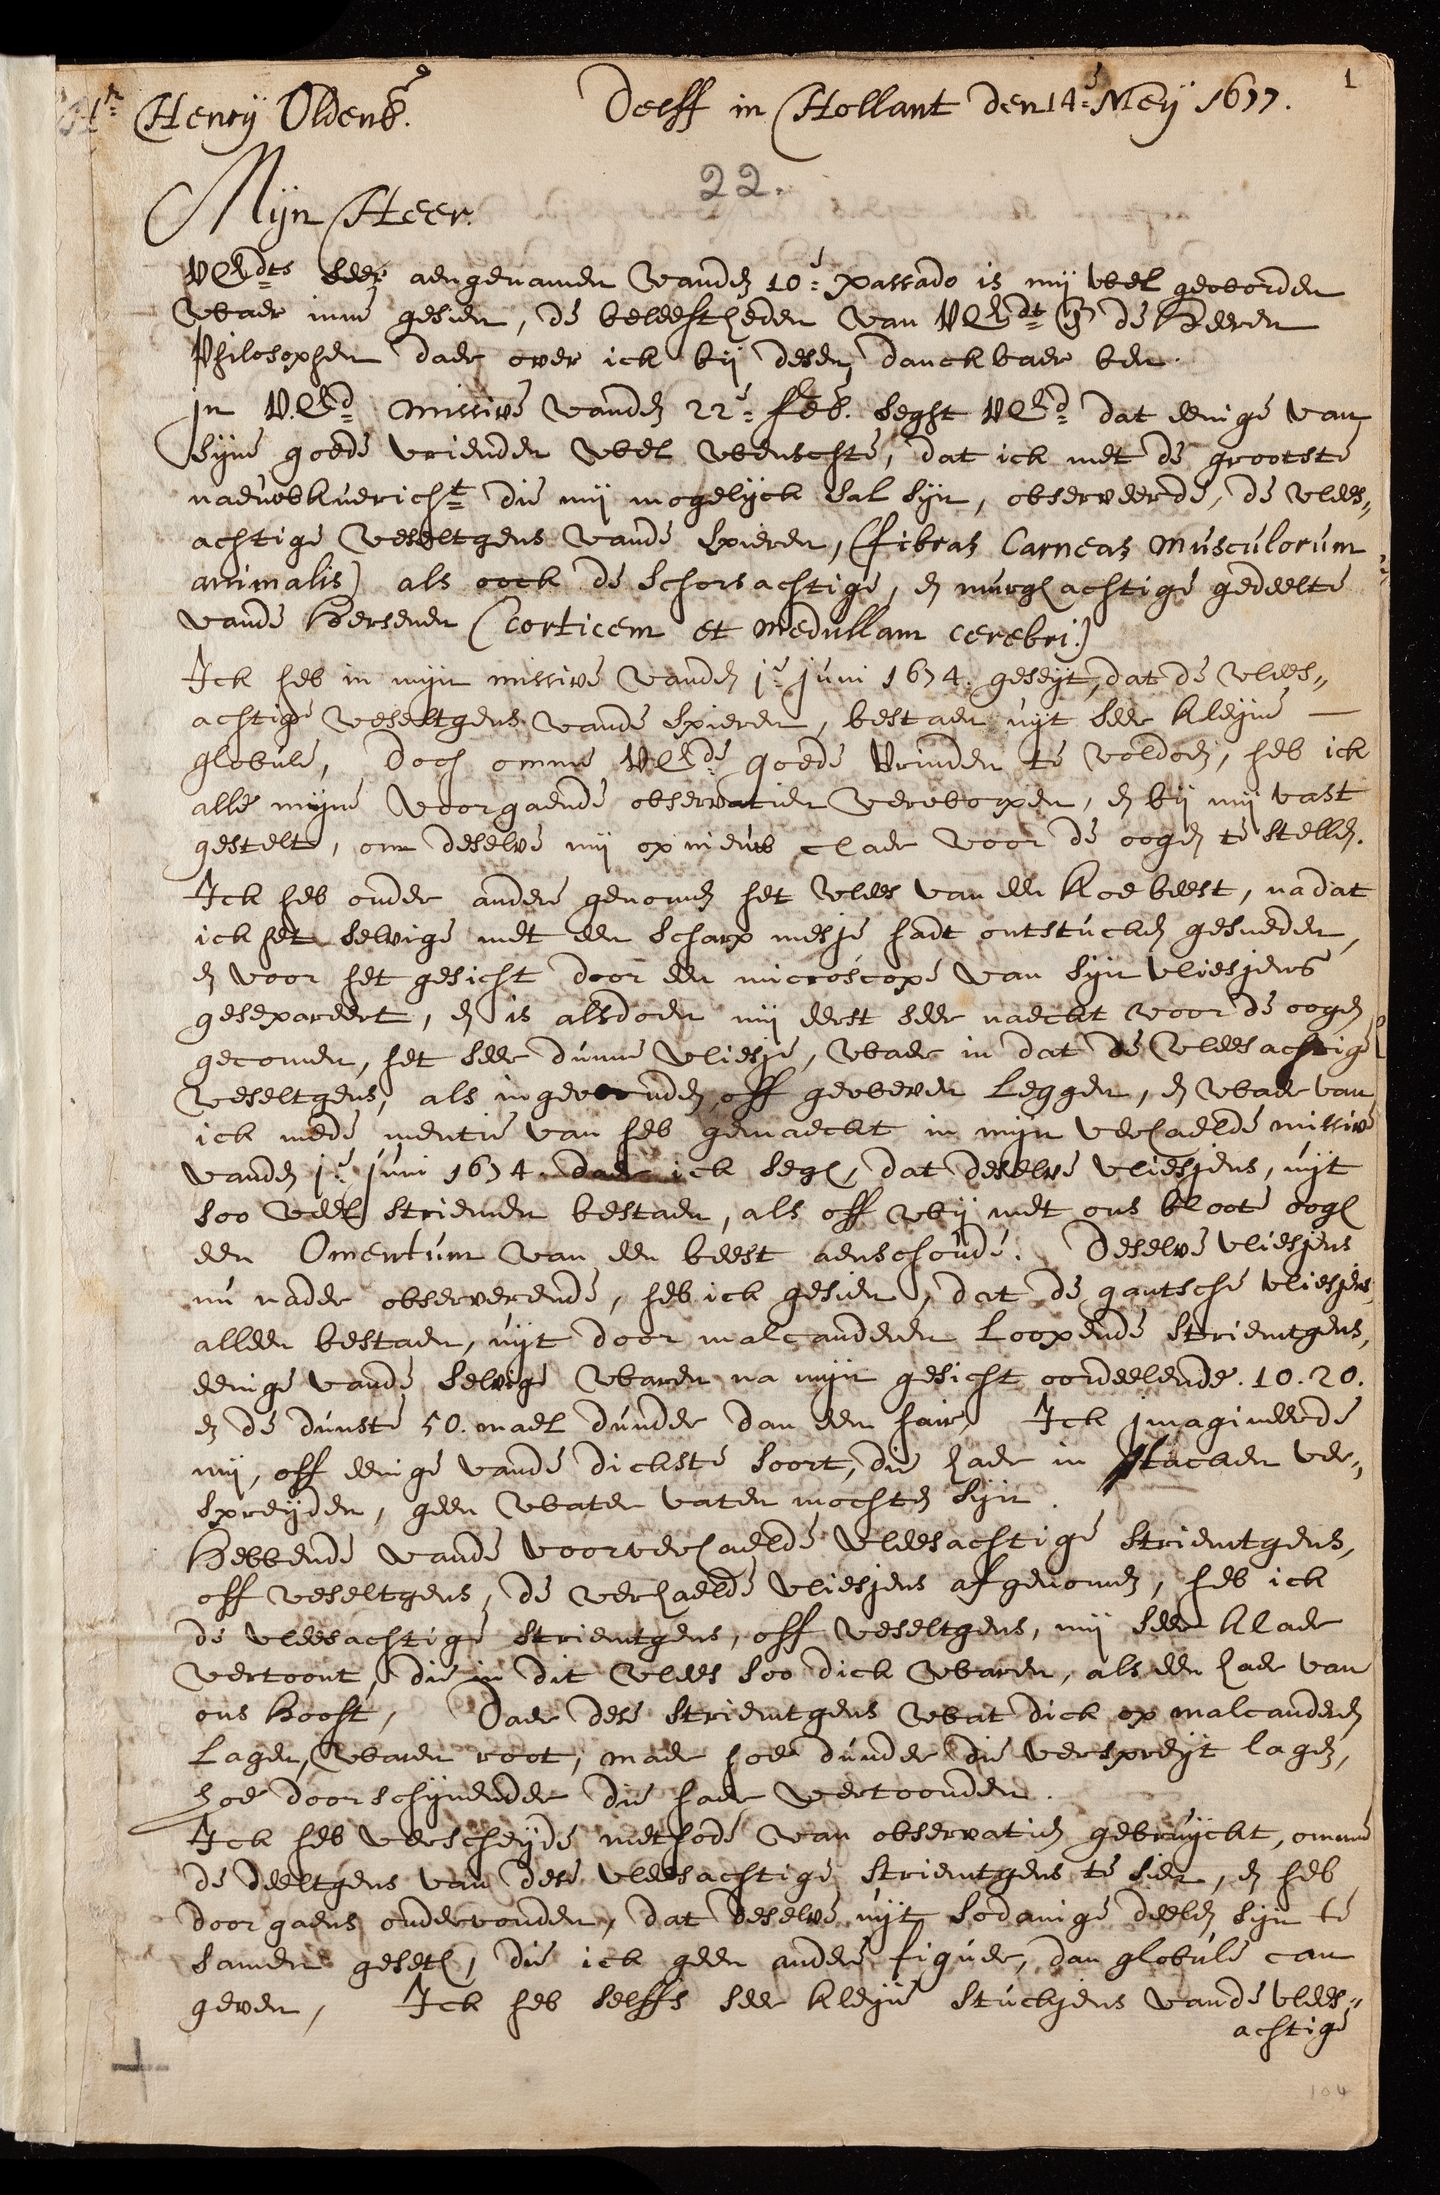 1
Hr Henrÿ Oldenb. Delff in Hollant den 14e Meÿ 1677.
22.
Mÿn Heer.
UEdts seer aengenamen vanden 10e passado is mÿ wel geworden
waer inne gesien, de beleeftheden van UEdt en de Heeren
Philosophen daer over ick bÿ desen, danckbaer ben.
In U.Ed missive vanden 22e feb. seght UEd dat eenige van
sÿne goede vrienden wel wenschte, dat ick met de grootste
naeuwkuericht die mÿ mogelÿck sal sÿn, observeerde, de vlees„
achtige veseltgens vande spieren, (fibras Carneas Musculorum
animalis) als oock de schorsachtige, en murghachtige gedeelte
vande Hersenen (Corticem et Medullam cerebri.)
Ick heb in mÿn missive vanden je juni 1674. geseÿt, dat de vlees„
achtige veseltgens vande spieren, bestaen uÿt seer kleÿne —
globule, doch omme UEde goede Vrinden te voldoen, heb ick
alle mÿne voorgaende observatien verworpen, en bÿ mÿ vast
gestelt, om deselve mÿ op nieuw claer voor de oogen te stellen.
Ick heb onder andere genomen het vlees van een koebeest, nadat
ick het selvige met een scharp mesje hadt ontstucken gesneden,
en voor het gesicht door een microscope van sÿn vliesjens
gesepareert, en is alsdoen mÿ eerst seer naeckt voor de oogen
gecomen, het seer dunne vliesje, waer in dat de vleesachtige
veseltgens, als ingewonden, off geweven leggen, en waer van
ick mede mentie van heb gemaeckt in mÿn verhaelde missive
vanden je juni 1674. daer ick segh, dat deselve vliesjens, uÿt
soo veel striemen bestaen, als off wÿ met ons bloote oogh
een Omentum van een beest aenschoude. Deselve vliesjens
nu nader observerende, heb ick gesien, dat de gantsche vliesjens,
alleen bestaen, uÿt door malcanderen loopende striemtgens,
eenige vande selvige waren na mÿn gesicht oordeelende. 10. 20.
en de dunste 50. mael dunder dan een hair, Ick imagineerde
mÿ, off eenige vande dickste soort, die haer in tacken ver„
spreÿden, geen water vaten mochten sÿn.
Hebbende vande voorverhaelde vleesachtige striemtgens,
off veseltgens, de verhaelde vliesjens afgenomen, heb ick
de vleesachtige striemtgens, off veseltgens, mÿ seer klaer
vertoont, die in dit vlees soo dick waren, als een haer van
ons hooft, Daer dese striemtgens wat dick op malcanderen
lagen, waren root, maer hoe dunder die verspreÿt lagen,
hoe doorschÿnender die haer vertoonden.
Ick heb verscheÿde methode van observatien gebruÿckt, omme
de deeltgens van dese vleesachtige striemtgens te sien, en heb
doorgaens ondervonden, dat deselve uÿt sodanige deelen sÿn te
samen geseth, die ick geen andere figuer, dan globule can
geven, Ick heb selffs seer kleÿne stuckjens vande vlees„
achtige
104